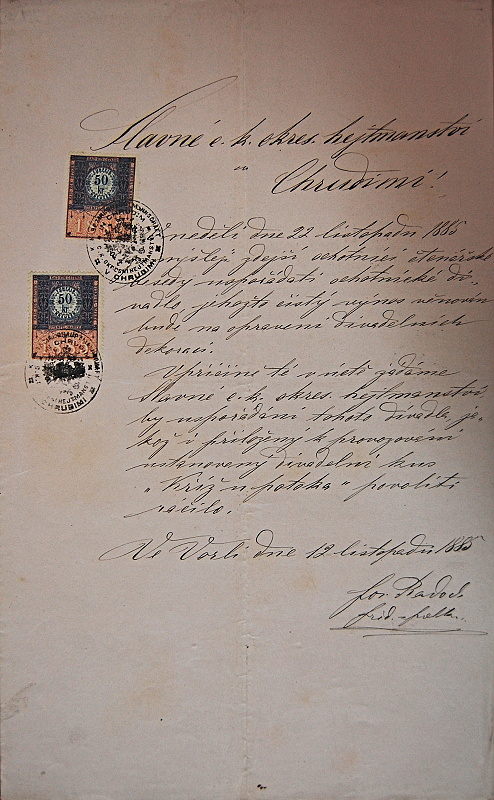 Slavné c. k. okres. hejtmanství
v
Chrudimi!
V neděli dne 22 listopadu 1885
mýslejí zdejší ochotníci čtenářské
besedy uspořádati ochotnické di-
vadlo jehožto čistý výnos věnován
bude na opravení divadelních
dekorací.
Vpříčině té v netě žádáme
slavné c. k. okres. hejtmanství
by uspořádání tohoto divadla ja-
kož i přiložený k provozování
ustanovený divadelní kus
„Kříž u potoka" povoliti
ráčilo.
Ve Voxli dne 12 listopadu 1885
Jos. Radoch
50
kr
1
V CHRUDIMI
50
kr
1
CHRUDIMI